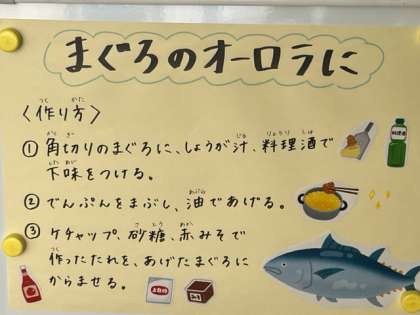 まぐろのオーロラに
〈作り方〉
① 角切りのまぐろに、しょうが汁、料理酒で
下味をつける。
② でんぷんをまぶし、油であげる。
③ ケチャップ、砂糖、赤みそで
作ったたれを、あげたまぐろに
からませる。
料理酒